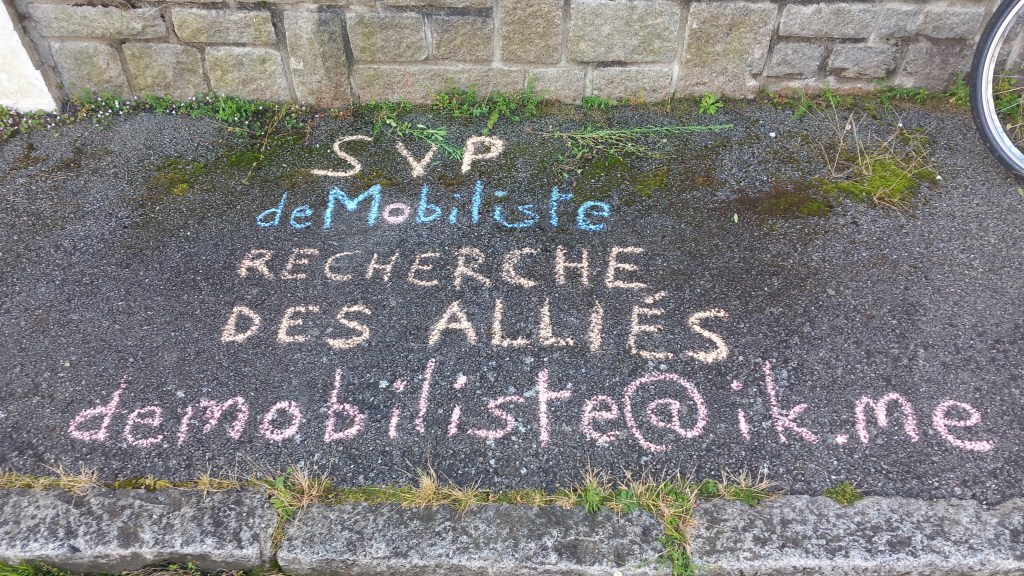 SVP
deMobiliste
RECHERCHE
DES ALLIÉS
demobiliste@ik.me